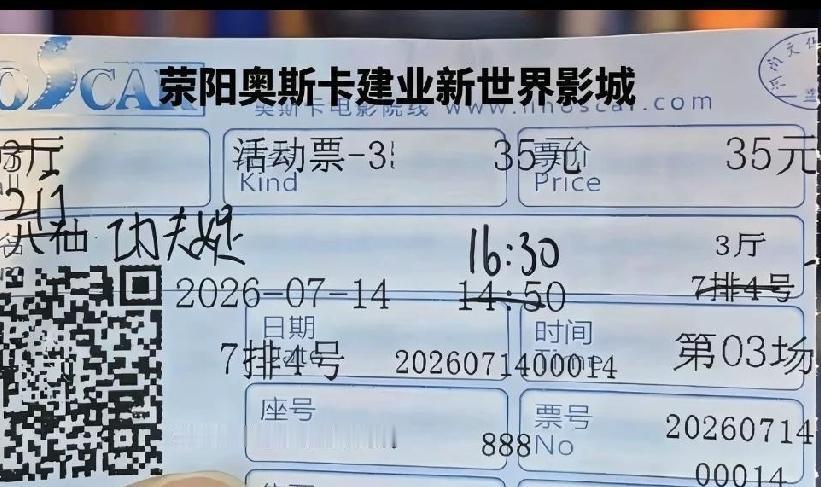 OSCAR
荥阳奥斯卡建业新世界影城
奥斯卡电影院线 www.hnoscar.com
3厅
活动票-3
35元
票价
35元
Kind
Price
2厅
功夫
16:30
3厅
2026-07-14
14:50
7排4号
日期
时间
7排4号
2026071400014
第03场
座号
票号
20260714
888
No
00014